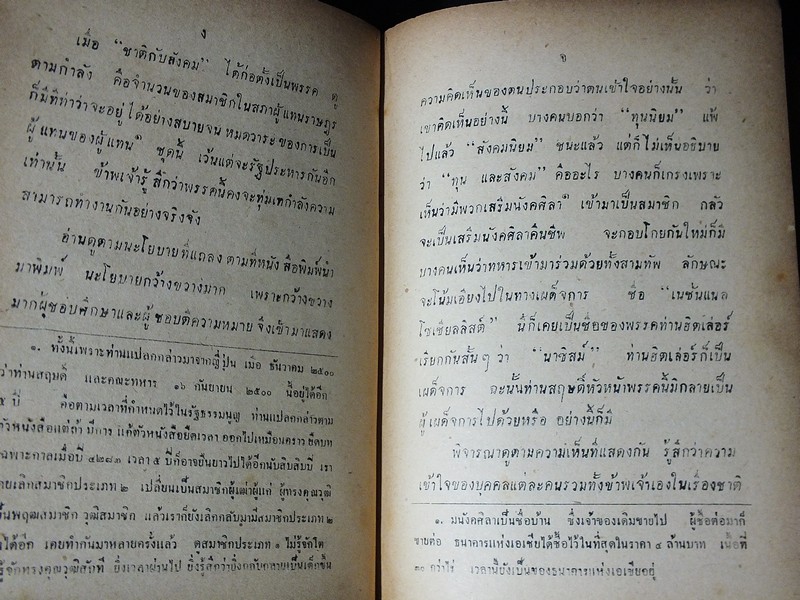 ง
เมื่อ “ชาติกับสังคม” ได้ก่อตั้งเป็นพรรค ดู
ตามกำลัง คือจำนวนของสมาชิกในสภาผู้แทนราษฎร
ก็มีทีท่าว่าจะอยู่ได้อย่างสบายจนหมดวาระของการเป็น
ผู้แทนของผู้แทน ชุดนี้ เว้นแต่จะรัฐประหารกันอีก
เท่านั้น ข้าพเจ้ารู้สึกว่าพรรคนี้คงจะทุ่มเทกำลังความ
สามารถทำงานกันอย่างจริงจัง
อ่านดูตามนะโยบายที่แถลง ตามที่หนังสือพิมพ์นำ
มาพิมพ์ นะโยบายกว้างขวางมาก เพราะกว้างขวาง
มากผู้ชอบศึกษาและผู้ชอบตีความหมาย จึงเข้ามาแสดง
๑. ทั้งนี้เพราะท่านแปลกกล่าวมาจากญี่ปุ่น เมื่อ ธันวาคม ๒๕๐๐
ว่าท่านสฤษดิ์ และคณะทหาร ๑๖ กันยายน ๒๕๐๐ นี้อยู่ได้อีก
๕ ปี คือตามเวลาที่กำหนดไว้ในรัฐธรรมนูญ ท่านแปลกกล่าวตาม
ตัวหนังสือแต่ถ้า มีการ แก้ตัวหนังสือยืดเวลา ออกไปเหมือนคราว ยืดบท
เฉพาะกาลเมื่อปี ๘๔๘๓ เวลา ๕ ปีก็อาจยืนยาวไปได้อีกนับสิบสิบปี เรา
ยเลิกสมาชิกประเภท ๒ เปลี่ยนเป็นสมาชิกผู้เฒ่าผู้แก่ ผู้ทรงคุณวุฒิ
ป็นพฤฒสมาชิก วุฒิสมาชิก แล้วเราก็ยังเลิกกลับมามีสมาชิกประเภท ๒
ได้อีก เคยทำกันมาหลายครั้งแล้ว ตสมาชิกประเภท ๑ ไม่รู้จักโต
รู้จักทรงคุณวุฒิสักที ยิ่งเวลาผ่านไป ยิ่งรู้สึกว่ายิ่งกลับกลายเป็นเด็กขึ้น
จ
ความคิดเห็นของตนประกอบว่าตนเข้าใจอย่างนั้น ว่า
เขาคิดเห็นอย่างนี้ บางคนบอกว่า “ทุนนิยม” แพ้
ไปแล้ว “สังคมนิยม” ชนะแล้ว แต่ก็ไม่เห็นอธิบาย
ว่า “ทุน และสังคม” คืออะไร บางคนก็เกรงเพราะ
เห็นว่ามีพวกเสรีมนังคศิลา๑ เข้ามาเป็นสมาชิก กลัว
จะเป็นเสรีมนังคศิลาคืนชีพ จะกอบโกยกันใหม่ก็มี
บางคนเห็นว่าทหารเข้ามาร่วมด้วยทั้งสามทัพ ลักษณะ
จะโน้มเอียงไปในทางเผด็จการ ชื่อ “เนชันแนล
โซเชียลลิสต์” นี้ก็เคยเป็นชื่อของพรรคท่านฮิตเล่อร์
เรียกกันสั้นๆ ว่า “นาซิสม์” ท่านฮิตเล่อร์ก็เป็น
เผด็จการ ฉะนั้นท่านสฤษดิ์หัวหน้าพรรคนี้มิกลายเป็น
ผู้เผด็จการไปด้วยหรือ อย่างนี้ก็มี
พิจารณาดูตามความเห็นที่แสดงกัน รู้สึกว่าความ
เข้าใจของบุคคลแต่ละคนรวมทั้งข้าพเจ้าเองในเรื่องชาติ
๑. มนังคศิลาเป็นชื่อบ้าน ซึ่งเจ้าของเดิมขายไป ผู้ซื้อต่อมาก็
ขายต่อ ธนาคารแห่งเอเซียได้ซื้อไว้ในที่สุดในราคา ๔ ล้านบาท เนื้อที่
๒๐ กว่าไร่ เวลานี้ยังเป็นของธนาคารแห่งเอเซียอยู่